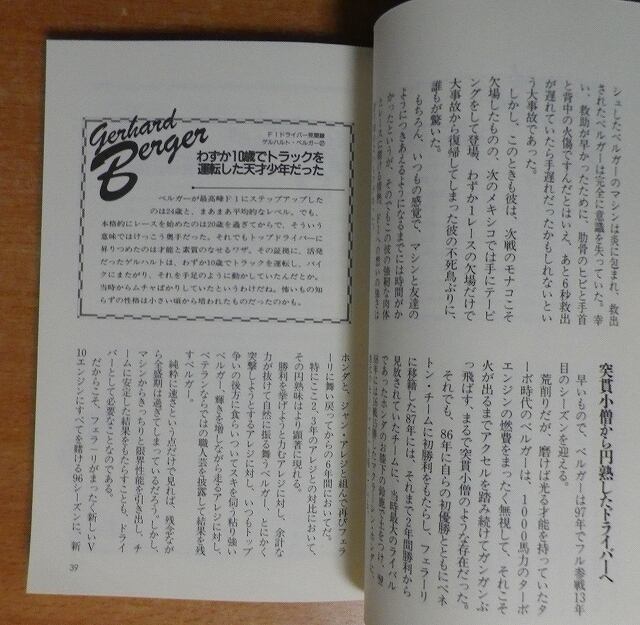 シュしたベルガーのマシンは炎に包まれ、救出
されたベルガーは完全に意識を失っていた。幸
い、救助が早かったために、肋骨のヒビと手首
と背中の火傷ですんだとはいえ、あと6秒救出
が遅れていたら手遅れだったかもしれないとい
う大事故であった。
しかし、このときも彼は、次戦のモナコこそ
欠場したものの、次のメキシコでは手にテーピ
ングをして登場、わずか1レースの欠場だけで
大事故から復帰してしまった彼の不死鳥ぶりに、
誰もが驚いた。
もちろん、いつもの感覚で、マシンと友達の
ようにつきあえるようになるまでには時間がか
かったというが、そのでもこの彼の強靭な肉体
突貫小僧から円熟したドライバーへ
早いもので、ベルガーは97年でフル参戦13年
目のシーズンを迎える。
荒削りだが、磨けば光る才能を持っていたタ
ーボ時代のベルガーは、1000馬力のターボ
エンジンの燃費をまったく無視して、それこそ
火が出るまでアクセルを踏み続けてガンガンぶ
っ飛ばす、まるで突貫小僧のような存在だった。
それでも、86年に自らの初優勝とともにベネ
トン・チームに初勝利をもたらし、フェラーリ
に移籍した87年には、それまで2年間勝利から
見放されていたチームに、当時最大のライバル
であったホンダのお膝下の鈴鹿で土をつけ、翌
Gerhard Berger
F1ドライバー見聞録
ゲルハルト・ベルガー②
わずか10歳でトラックを
運転した天才少年だった
ベルガーが最高峰F1にステップアップした
のは24歳と、まあまあ平均的なレベル。でも、
本格的にレースを始めたのは20歳を過ぎてからで、そういう
意味ではけっこう奥手だった。それでもトップドライバーに
昇りつめたのは才能と素質のなせるワザ。その証拠に、活発
だったゲルハルトは、わずか10歳でトラックを運転し、バイ
クにまたがり、それを手足のように動かしていたんだとか。
当時からムチャばかりしていたというわけだね。怖いもの知
らずの性格は小さい頃から培われたものだったのかも。
ホンダと、ジャン・アレジと組んで再びフェラ
ーリに舞い戻ってからの6年間においてだ。
特にここ2、3年のアレジとの対比において、
その円熟味はより顕著に現れる。
勝利を挙げようと力むアレジに対し、余計な
力が抜けて自然に振る舞うベルガー、とにかく
突撃しようとするアレジに対し、いつもトップ
争いの後方に食らいついてスキを伺う粘り強い
ベルガー、輝きを増しながら走るアレジに対し、
ベテランならではの職人芸を披露して結果を残
すベルガー。
純粋に速さという点だけで見れば、残念なが
ら全盛期は過ぎてしまっているだろう。しかし、
マシンからきっちりと限界性能を引き出し、チ
ームに安定した結果をもたらすことも、ドライ
バーとして必要なことなのである。
だからこそ、フェラーリがまったく新しいV
10エンジンにすべてを賭ける96シーズンに、新
39